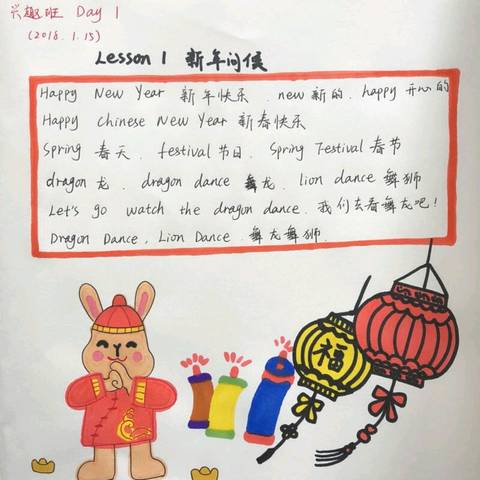 兴趣班 Day 1
(2018.1.15)
Lesson 1 新年问候
Happy New Year 新年快乐. new 新的. happy 开心的
Happy Chinese New Year 新春快乐
Spring 春天. festival 节日. Spring Festival 春节
dragon 龙. dragon dance 舞龙. lion dance 舞狮
Let's go watch the dragon dance. 我们去看舞龙吧!
Dragon Dance, Lion Dance 舞龙舞狮.
福